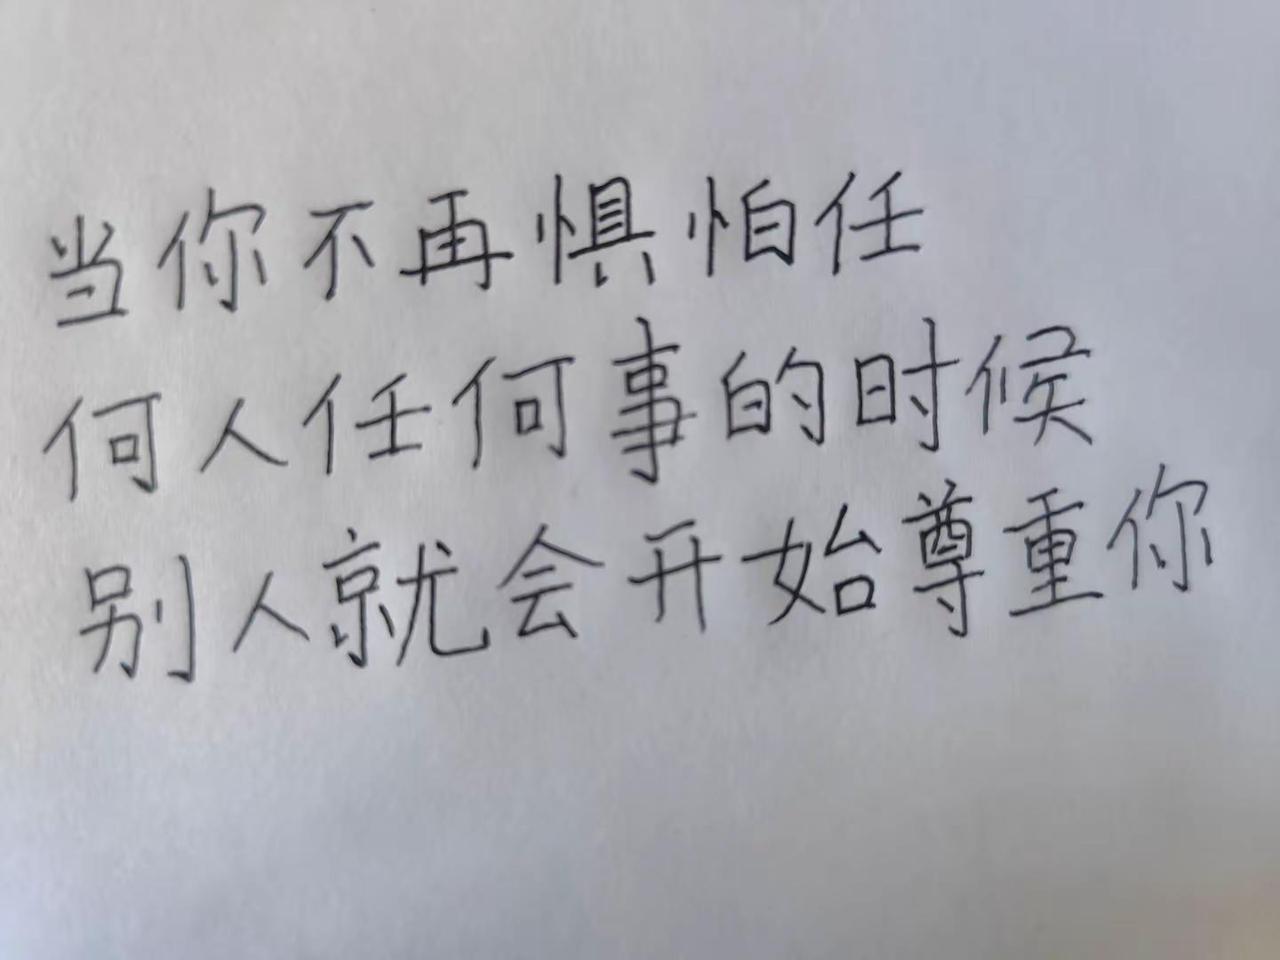 当你不再惧怕任
何人任何事的时候
别人就会开始尊重你